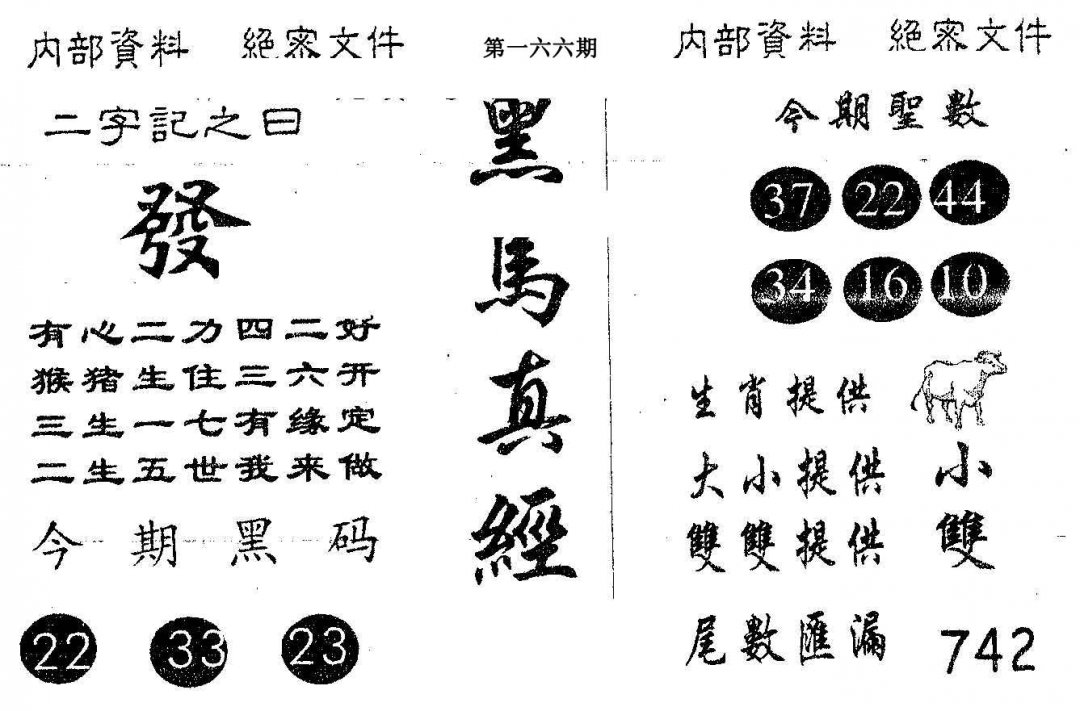 内部資料 絕密文件 第一六六期 内部資料 絕密文件
二字記之曰
發
有心二力四二好
猴猪生住三六开
三生一七有缘定
二生五世我来做
今期黑码
22 33 23
黑馬真經
今期聖數
37 22 44
34 16 10
生肖提供
大小提供 小
雙雙提供 雙
尾數匯漏 742